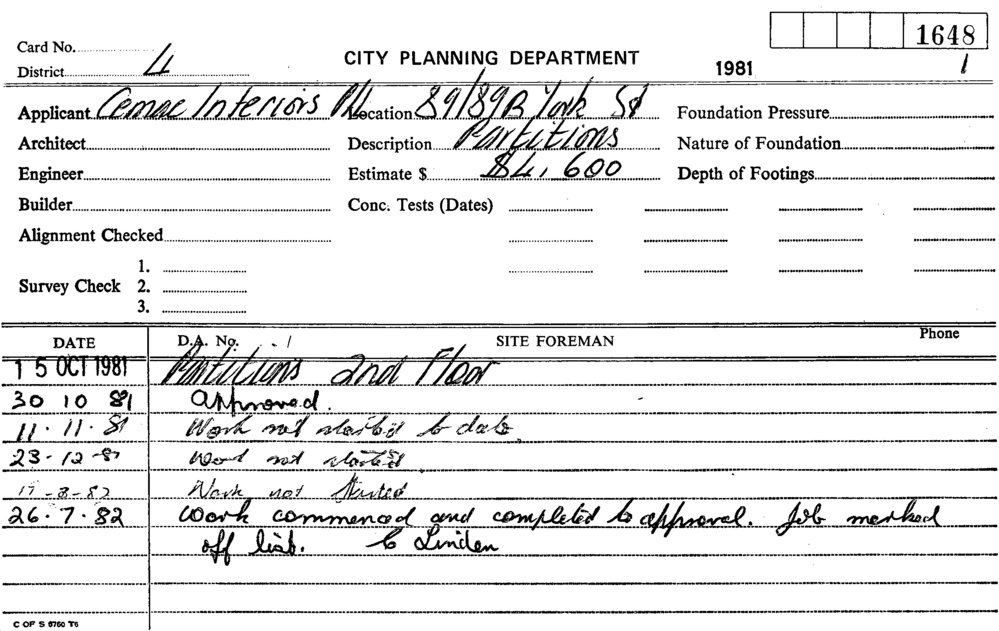 1648
Card No.
CITY PLANNING DEPARTMENT
District 4
1981
1
Applicant Cemac Interiors P/L Location 89/89B York St Foundation Pressure
Architect Description Partitions Nature of Foundation
Engineer Estimate $ $4,600 Depth of Footings
Builder Conc. Tests (Dates)
Alignment Checked
1.
Survey Check 2.
3.
DATE D.A. No. SITE FOREMAN Phone
15 OCT 1981 Partitions 2nd Floor
30 10 81 Approved.
11 . 11 . 81 Work not started to date.
23 - 12 - 81 Work not started
-82 Work not started
26 . 7 . 82 Work commenced and completed to approval. Job marked
off list. Linden
C OF S 6760 T6